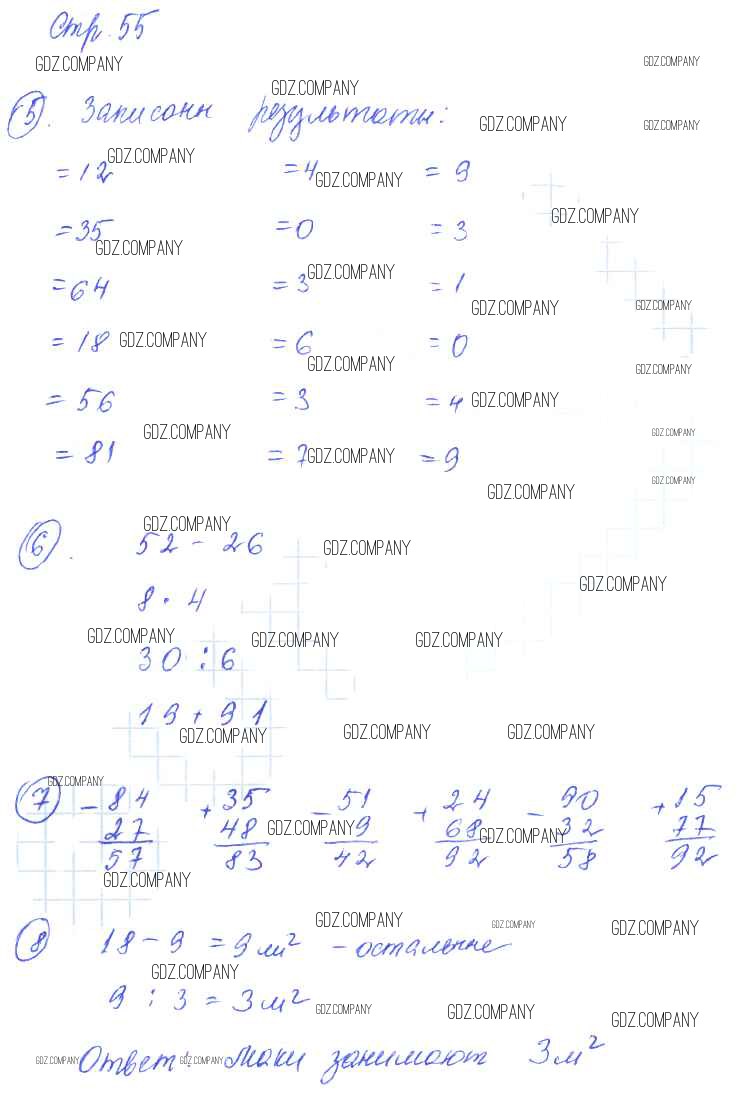 Стр. 55
GDZ.COMPANY GDZ.COMPANY
GDZ.COMPANY
5. Записани результаты: GDZ.COMPANY GDZ.COMPANY
GDZ.COMPANY
= 12 = 4 GDZ.COMPANY = 9
GDZ.COMPANY
= 35 = 0 = 3
GDZ.COMPANY
= 64 = 3 GDZ.COMPANY = 1
GDZ.COMPANY GDZ.COMPANY
= 18 GDZ.COMPANY = 6 = 0
GDZ.COMPANY GDZ.COMPANY
= 56 = 3 = 4 GDZ.COMPANY
GDZ.COMPANY GDZ.COMPANY
= 81 = 7 GDZ.COMPANY = 9
GDZ.COMPANY GDZ.COMPANY
GDZ.COMPANY
6. 52 - 26 GDZ.COMPANY
GDZ.COMPANY
8 · 4
GDZ.COMPANY GDZ.COMPANY GDZ.COMPANY
30 : 6
19 + 91
GDZ.COMPANY GDZ.COMPANY GDZ.COMPANY
GDZ.COMPANY
7 - 84 + 35 - 51 + 24 - 90 + 15
27 48 GDZ.COMPANY 9 68 GDZ.COMPANY 32 77
57 83 42 92 58 92
GDZ.COMPANY
GDZ.COMPANY GDZ.COMPANY GDZ.COMPANY
8 18 - 9 = 9 м² - остальные
GDZ.COMPANY
9 : 3 = 3 м² GDZ.COMPANY GDZ.COMPANY GDZ.COMPANY
GDZ.COMPANY Ответ: GDZ.COMPANY маки занимают 3 м²